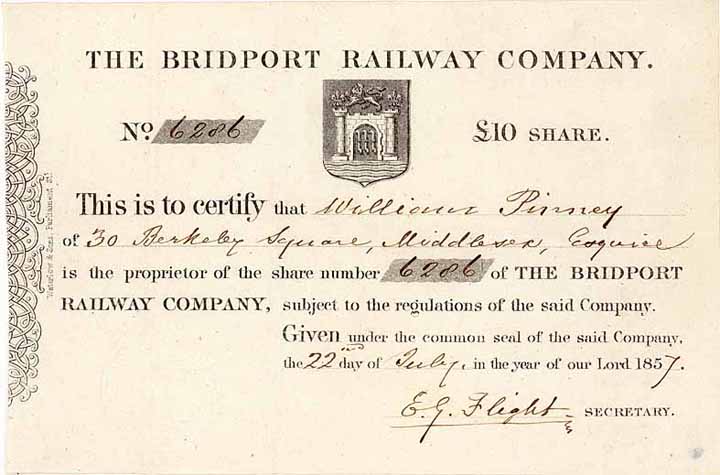 THE BRIDPORT RAILWAY COMPANY.
No. 6286 £10 SHARE.
This is to certify that William Pinney
of 30 Berkeley Square, Middlesex, Esquire
is the proprietor of the share number 6286 of THE BRIDPORT
RAILWAY COMPANY, subject to the regulations of the said Company.
Given under the common seal of the said Company,
the 22nd day of July, in the year of our Lord 1857.
E. G. Flight SECRETARY.
Waterlow & Sons, Parliament St.